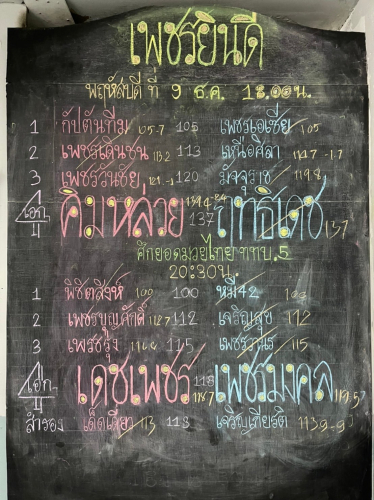 เพชรยินดี
พฤหัสบดี ที่ 9 ธ.ค. 18.00น.
1 กัปตันทีม 105.7 105 เพชรเอเชีย 105
2 เพชรเด่นชน 113 เหนือศิลา
3 เพชรวันชัย 120 มังจุราช 119.8
เอก 4 คิมหลวย 137 ฤทธิเดช 137
ศึกยอดมวยไทย ททบ.5
20:30น.
1 พิชิตสิงห์ 100 100 หมี42
2 เพชรบูญศักดิ์ 112.7 112 เจริญสุข 112
3 เพชรรุ่ง 115 115
เอก 4 เดชเพชร 118 เพชรมงคล
สำรอง เด็ดเดี่ยว 113 113 เจริญเกียรติ